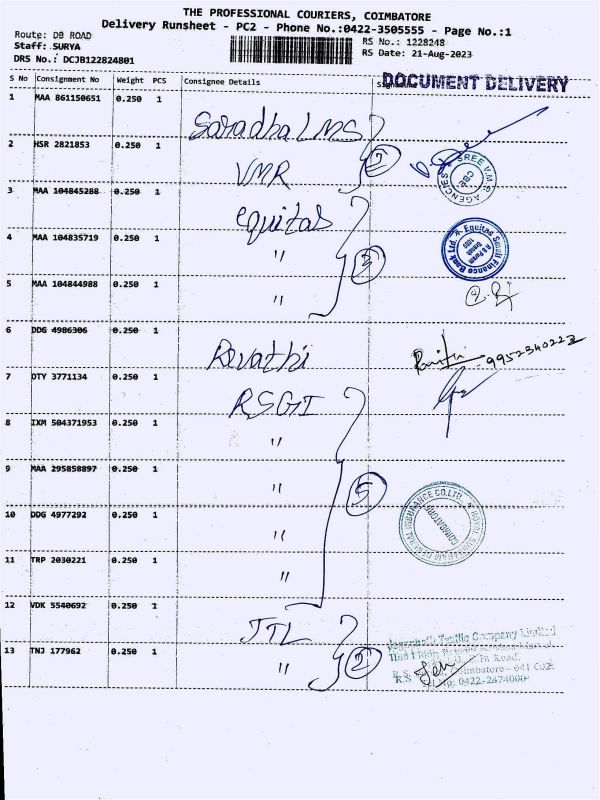 THE PROFESSIONAL COURIERS, COIMBATORE
Delivery Runsheet - PC2 - Phone No.:0422-3505555 - Page No.:1
Route: DB ROAD
Staff: SURYA
DRS No.: DCJB122824801
RS No.: 1228248
RS Date: 21-Aug-2023
S No Consignment No Weight PCS Consignee Details
DOCUMENT DELIVERY
1 MAA 861150651 0.250 1 Saradha LMS
2 HSR 2821853 0.250 1 VMR
SREE V.M.R. AGENCIES CBE.
3 MAA 104845288 0.250 1 equitas
4 MAA 104835719 0.250 1 "
3
Equitas Small Finance Bank Ltd.
5 MAA 104844988 0.250 1 "
6 DDG 4986306 0.250 1 Revathi
9952340223
7 OTY 3771134 0.250 1 RSGI
8 IXM 504371953 0.250 1 "
9 MAA 295858897 0.250 1 "
5
10 DDG 4977292 0.250 1 "
ROYAL SUNDARAM GENERAL INSURANCE CO.LTD.
COIMBATORE
11 TRP 2030221 0.250 1 "
12 VDK 5540692 0.250 1 JTL
13 TNJ 177962 0.250 1 "
2
Textile Company Limited
Coimbatore - 641 002
0422-2474000